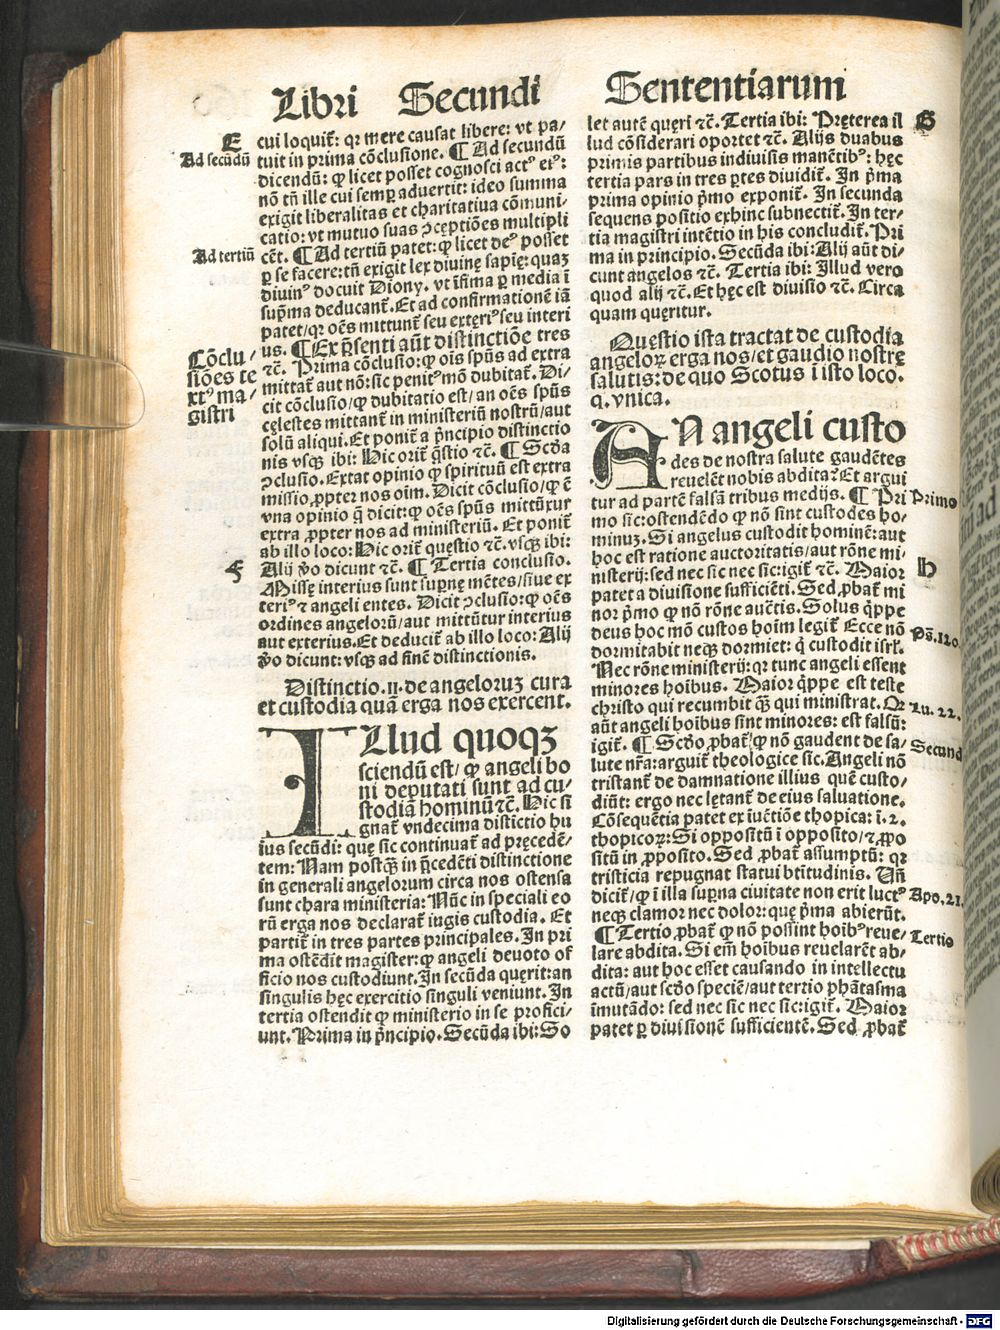 Libri Secundi Sententiarum
E
Ad secũdũ
Ad tertiũ
Cõclu/
siões te
xtꝰ ma/
gistri
F
cui loquit᷑: qꝛ mere causat libere: vt pa/
tuit in prima cõclusione. ¶ Ad secundũ
dicendũ: ꝙ licet posset cognosci actꝰ eiꝰ:
nõ tñ ille cui semꝑ aduertit: ideo summa
exigit liberalitas et charitatiua cõmuni/
catio: vt mutuo suas ꝯceptiões multipli
cẽt. ¶ Ad tertiũ patet: ꝙ licet deꝰ posset
ꝑ se facere: tñ exigit lex diuinę sapię: quaꝫ
diuinꝰ docuit Diony. vt ĩfima ꝑ media ĩ
sup̃ma deducant᷑. Et ad confirmationẽ iã
patet/ qꝛ oẽs mittunt᷑ seu exteriꝰ seu interi
us. ¶ Ex p̃senti aũt distinctiõe tres
⁊c̃. Prima cõclusio: ꝙ ois spũs ad extra
mittat᷑ aut nõ: sic penitꝰ mõ dubitat᷑. Di/
cit cõclusio/ ꝙ dubitatio est/ an oẽs spũs
cęlestes mittant᷑ in ministeriũ nostrũ/ aut
solũ aliqui. Et ponit᷑ a p̃ncipio distinctio
nis vsqꝫ ibi: Hic orit᷑ q̃stio ⁊c̃. ¶ Scd̃a
ꝯclusio. Extat opinio ꝙ spirituũ est extra
missio ꝓpter nos oĩm. Dicit cõclusio/ ꝙ ẽ
vna opinio q̃ dicit: ꝙ oẽs spũs mittũtur
extra ꝓpter nos ad ministeriũ. Et ponit᷑
ab illo loco: Hic orit᷑ questio ⁊c̃. vsqꝫ ibi:
Alij ṽo dicunt ⁊c̃. ¶ Tertia conclusio.
Missę interius sunt sup̃nę mẽtes/ siue ex
teriꝰ ⁊ angeli entes. Dicit ꝯclusio: ꝙ oẽs
ordines angelorũ/ aut mittũtur interius
aut exterius. Et deducit᷑ ab illo loco: Alij
ṽo dicunt: vsqꝫ ad finẽ distinctionis.
Distinctio .11. de angeloruꝫ cura
et custodia quã erga nos exercent.
Illud quoqꝫ
sciendũ est/ ꝙ angeli bo
ni deputati sunt ad cu/
stodiã hominũ ⁊c̃. Hic si
gnat᷑ vndecima distictio hu
ius secũdi: quę sic continuat᷑ ad pręcedẽ/
tem: Nam postq̃ꝫ in p̃cedẽti distinctione
in generali angelorum circa nos ostensa
sunt chara ministeria: Nũc in speciali eo
rũ erga nos declarat᷑ iugis custodia. Et
partit᷑ in tres partes principales. In pri
ma ostẽdit magister: ꝙ angeli deuoto of
ficio nos custodiunt. In secũda querit: an
singulis hęc exercitio singuli veniunt. In
tertia ostendit ꝙ ministerio in se profici/
unt. Prima in p̃ncipio. Secũda ibi: So
let autẽ quęri ⁊c̃. Tertia ibi: Pręterea il
lud cõsiderari oportet ⁊c̃. Alijs duabus
primis partibus indiuisis manẽtibꝰ: hęc
tertia pars in tres ꝑtes diuidit᷑. In p̃ma
prima opinio p̃mo exponit᷑. In secunda
sequens positio exhinc subnectit᷑. In ter/
tia magistri intẽtio in his concludit᷑. Pri
ma in principio. Secũda ibi: Alij aũt di/
cunt angelos ⁊c̃. Tertia ibi: Illud vero
quod alij ⁊c̃. Et hęc est diuisio ⁊c̃. Circa
quam quęritur.
Questio ista tractat de custodia
angeloꝝ erga nos/ et gaudio nostrę
salutis: de quo Scotus ĩ isto loco.
q. vnica.
An angeli custo
des de nostra salute gaudẽtes
reuelẽt nobis abdita? Et argui
tur ad partẽ falsã tribus medijs. ¶ Pri
mo sic: ostendẽdo ꝙ nõ sint custodes ho/
minuꝫ. Si angelus custodit hominẽ: aut
hoc est ratione auctoritatis/ aut rõne mi/
nisterij: sed nec sic nec sic: igit᷑ ⁊c̃. Maior
patet a diuisione sufficiẽti. Sed ꝓbat᷑ mi
nor p̃mo ꝙ nõ rõne auc̃tis. Solus q̃ppe
deus hoc mõ custos hoĩm legit᷑ Ecce nõ
dormitabit neqꝫ dormiet: q̃ custodit isrl̃.
Nec rõne ministerij: qꝛ tunc angeli essent
minores hoĩbus. Maior q̃ppe est teste
christo qui recumbit q̃ꝫ qui ministrat. Qꝛ
aũt angeli hoĩbus sint minores: est falsũ:
igit᷑. ¶ Scd̃o ꝓbat᷑/ ꝙ nõ gaudent de sa/
lute nr̃a: arguit᷑ theologice sic. Angeli nõ
tristant᷑ de damnatione illius quẽ custo/
diũt: ergo nec lętant᷑ de eius saluatione.
Cõsequẽtia patet ex iuẽtiõe thopica: ĩ .2.
thopicoꝝ: Si oppositũ ĩ opposito/ ⁊ ꝓpo
sitũ in ꝓposito. Sed ꝓbat᷑ assumptũ: qꝛ
tristicia repugnat statui btĩtudinis. Vñ
dicit᷑/ ꝙ ĩ illa sup̃na ciuitate non erit luctꝰ
neqꝫ clamor nec dolor: quę p̃ma abierũt.
¶ Tertio ꝓbat᷑ ꝙ nõ possint hoĩbꝰ reue/
lare abdita. Si em̃ hoĩbus reuelarẽt ab/
dita: aut hoc esset causando in intellectu
actũ/ aut scd̃o speciẽ/ aut tertio phãtasma
imutãdo: sed nec sic nec sic: igit᷑. Maior
patet ꝑ diuisionẽ sufficientẽ. Sed ꝓbat᷑
G
Primo
H
Ps̃. 120.
Lu. 22.
Secund
Apo. 21.
Tertio
Digitalisierung gefördert durch die Deutsche Forschungsgemeinschaft - DFG